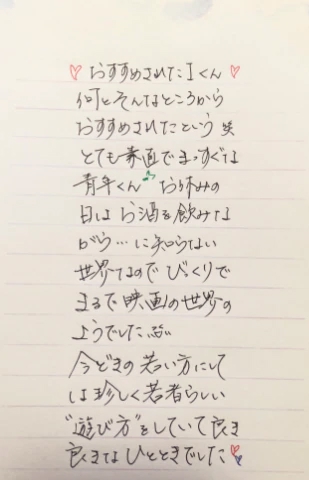 ♡ おすすめされたIくん ♡
何とそんなところから
おすすめされたという 笑
とても素直でまっすぐな
青年くん お休みの
日は お酒を飲みな
がら…に知らない
世界なので びっくりで
まるで 映画の世界の
ようでした
今どきの 若い方にして
は珍しく 若者らしい
"遊び方"をしていて 良き
良きな ひとときでした♡